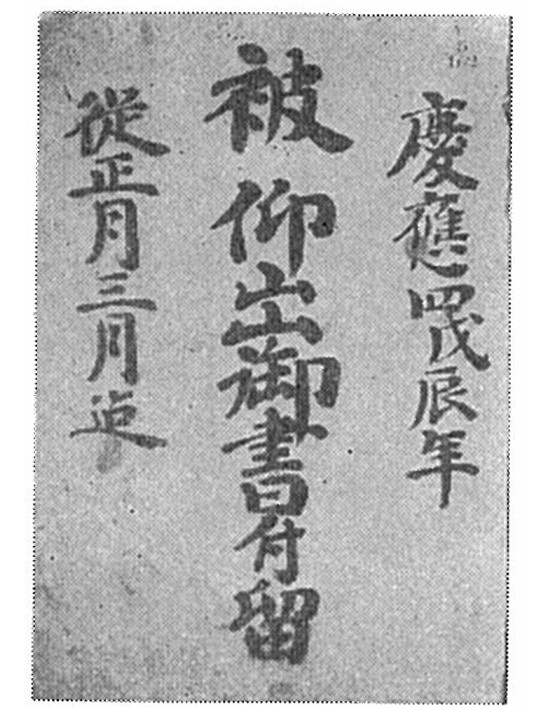 慶應四戊辰年
被仰出御書付留
從正月三月迠